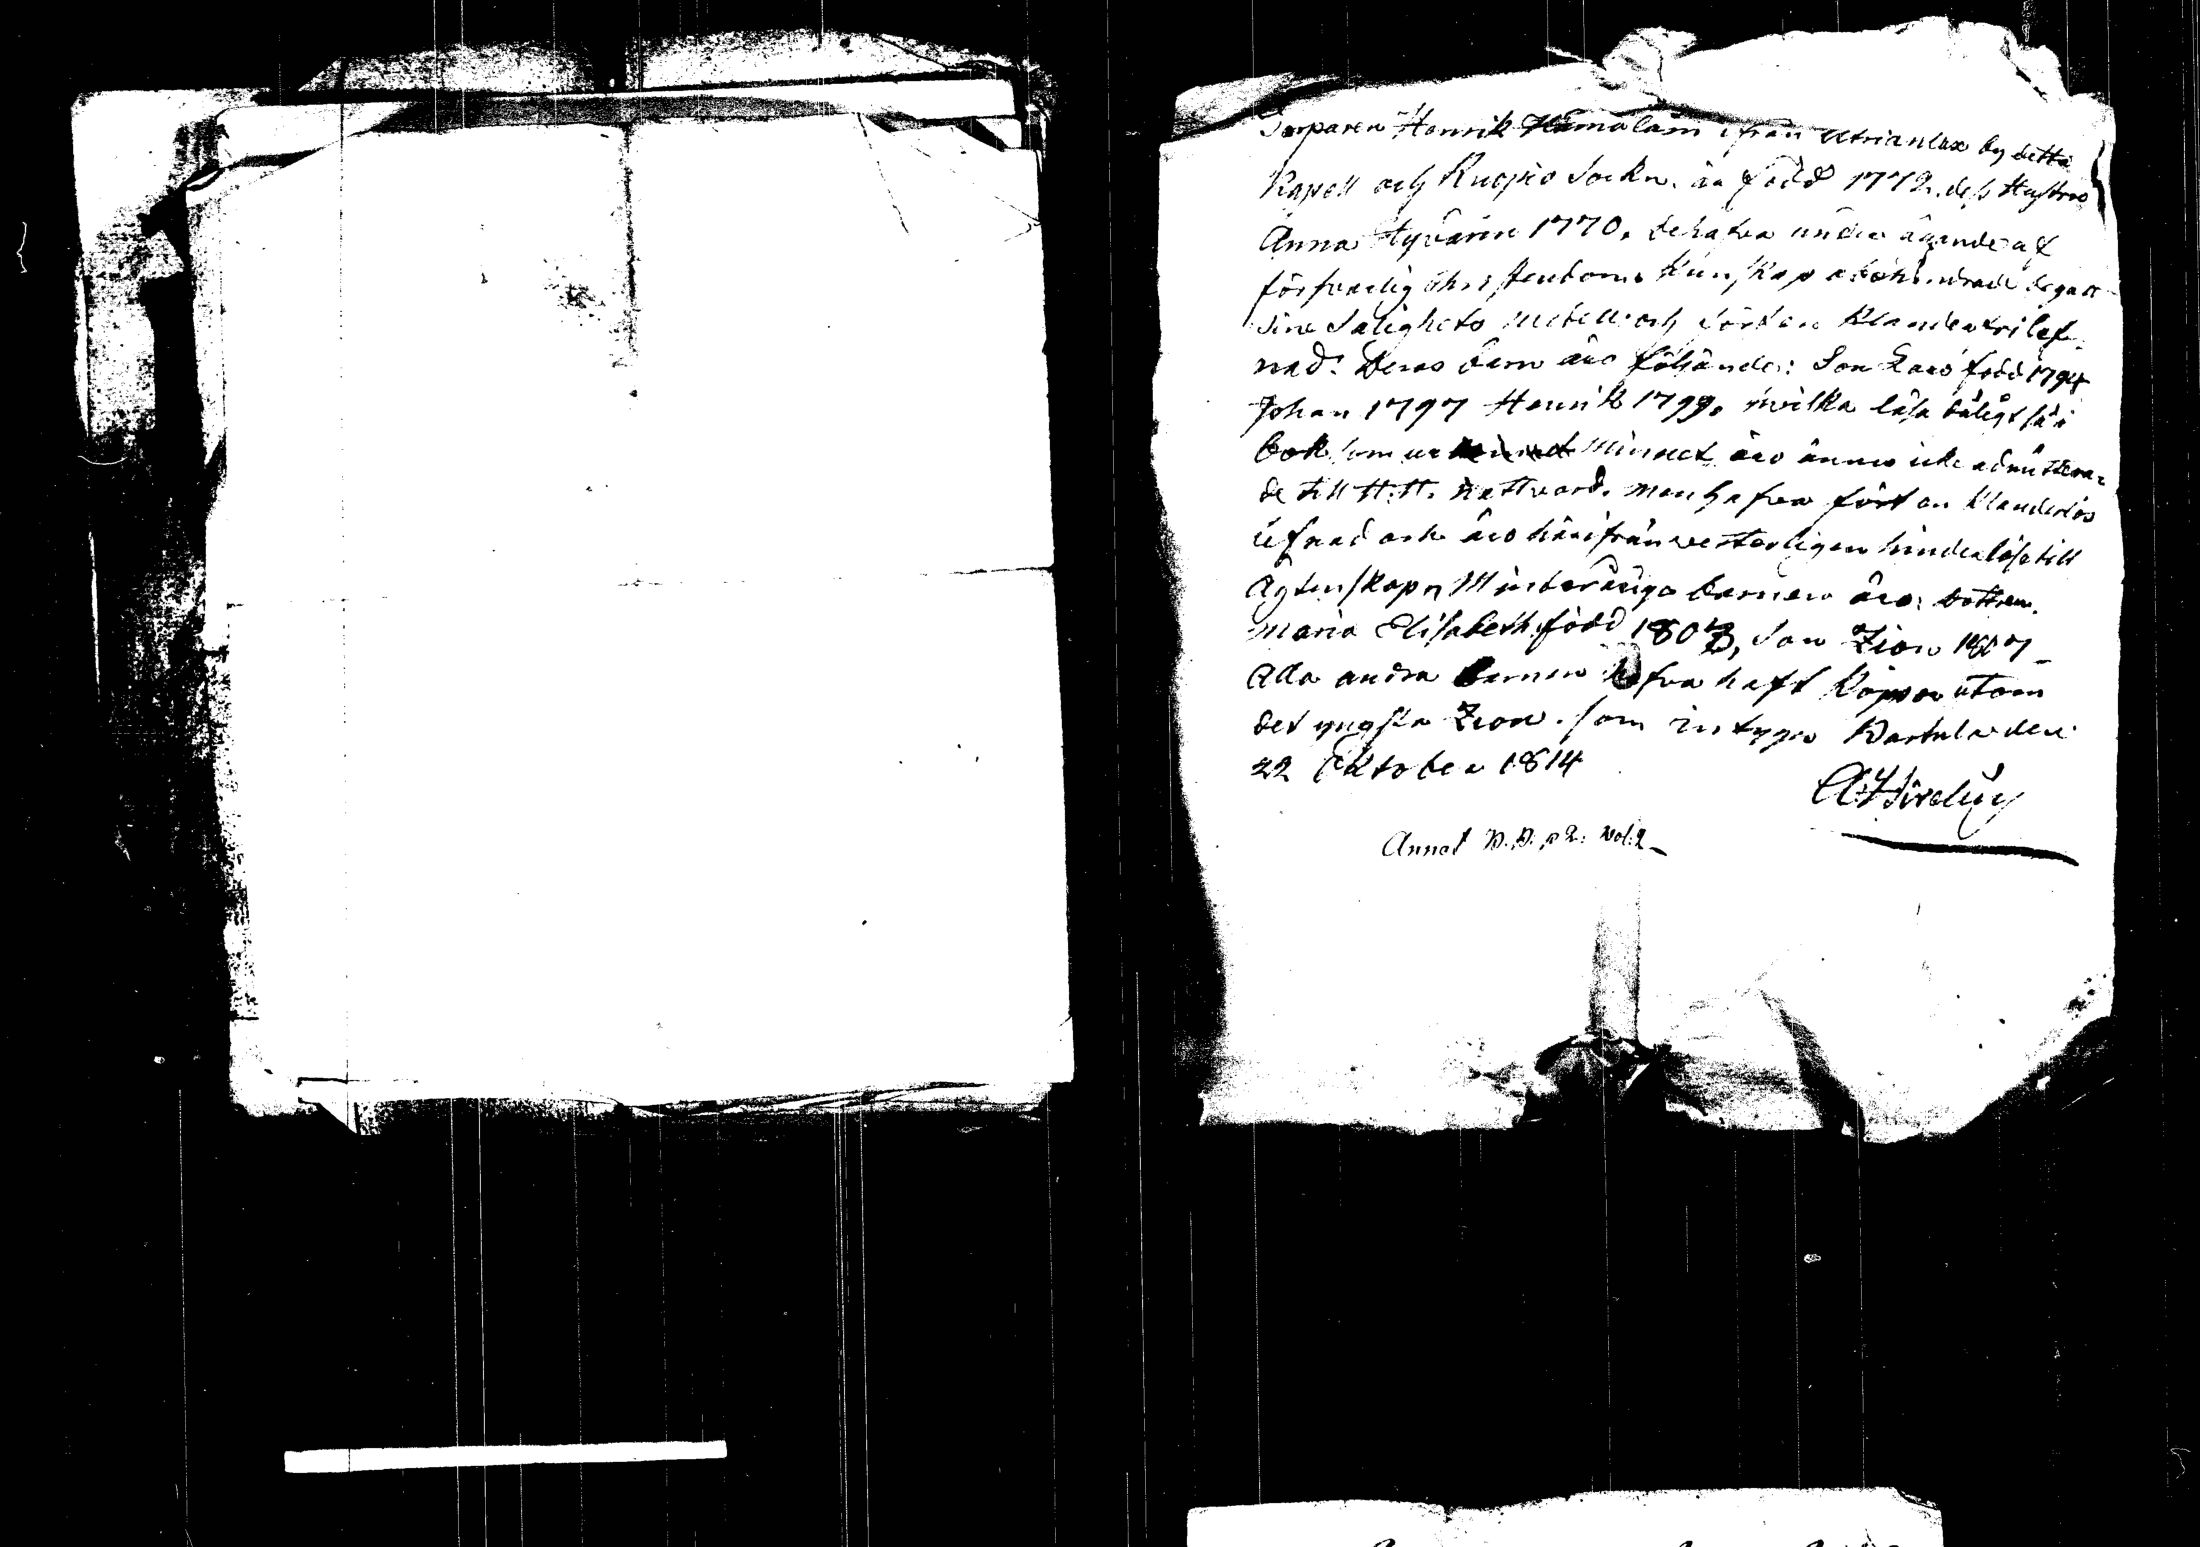 Torparen Henrik Hämäläin ifrån Utrianlax by detta
Kapell och Kuopio Sockn. är född 1772. dess Hustru
Anna Hyvärin 1770. de hafva under ägande af
försvarlig Christendoms Kunskap obehindrade begått
sine Salighets Medell och fört en Klanderfri lef-
nad. Deras barn äro följande: Son Lars född 1794
Johan 1797 Henrik 1799. hvilka läsa dåligt så i
bok som ur minnet äro ännu icke admittera-
de till H. H. Nattvard. men hafva fört en klanderlös
lefnad och äro härifrån veterligen hinderlöse till
Ägtenskap. Minderåriga barnen äro: dottren
Maria Elisabeth född 1803, Son Zion 1807
Alla andra barnen hafva haft Koppor utom
det yngsta Zion. som intygas Kartula den
22 Oktober 1814
Annot p. 2. vol. 2